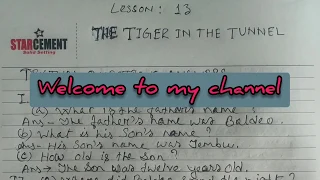 Lesson: 13
STARCEMENT
Solid Setting
THE TIGER IN THE TUNNEL
Welcome to my channel
(a) What is the father's name?
Ans- The father's name was Baldeo.
(b) What is his son's name?
Ans- His son's name was Tembu.
(c) How old is the son?
Ans→ The son was twelve years old.